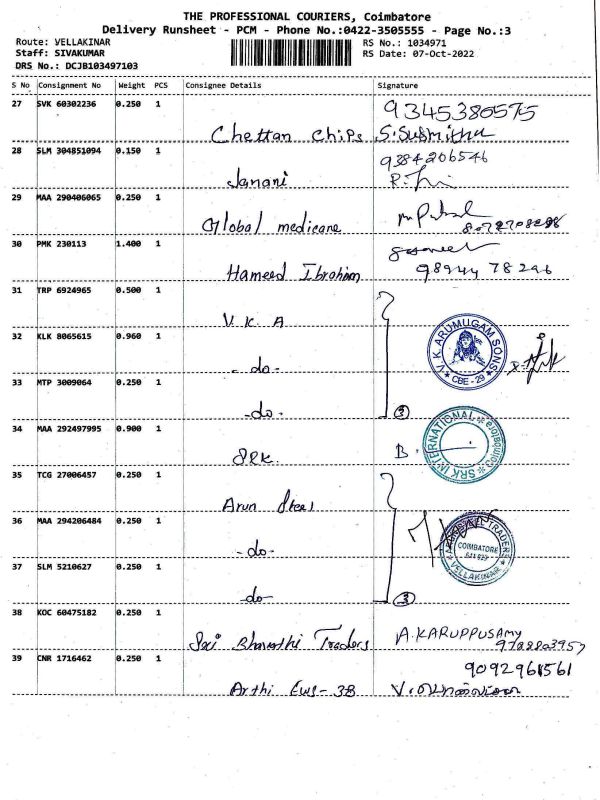 THE PROFESSIONAL COURIERS, Coimbatore
Delivery Runsheet - PCM - Phone No.:0422-3505555 - Page No.:3
Route: VELLAKINAR RS No.: 1034971
Staff: SIVAKUMAR RS Date: 07-Oct-2022
DRS No.: DCJB103497103
S No Consignment No Weight PCS Consignee Details Signature
27 SVK 60302236 0.250 1
9345380575
Chettan Chips S.Susmitha
28 SLM 304851094 0.150 1
9384206546
Janani
29 MAA 290406065 0.250 1
Global medicane
30 PMK 230113 1.400 1
Hameed Ibrahim 98944 78296
31 TRP 6924965 0.500 1
V.K.A
32 KLK 8065615 0.960 1
V.K. ARUMUGAM SONS
CBE - 29
-do-
33 MTP 3009064 0.250 1
-do- 3
34 MAA 292497995 0.900 1
SRK INTERNATIONAL
Coimbatore
SRK. B.
35 TCG 27006457 0.250 1
Arun Steel
36 MAA 294206484 0.250 1
TRADERS
COIMBATORE
VELLAKINAR
-do-
37 SLM 5210627 0.250 1
-do- 3
38 KOC 60475182 0.250 1
Sri Bharathi Traders A.KARUPPUSAMY
39 CNR 1716462 0.250 1
9092961561
Arthi EWS-3B